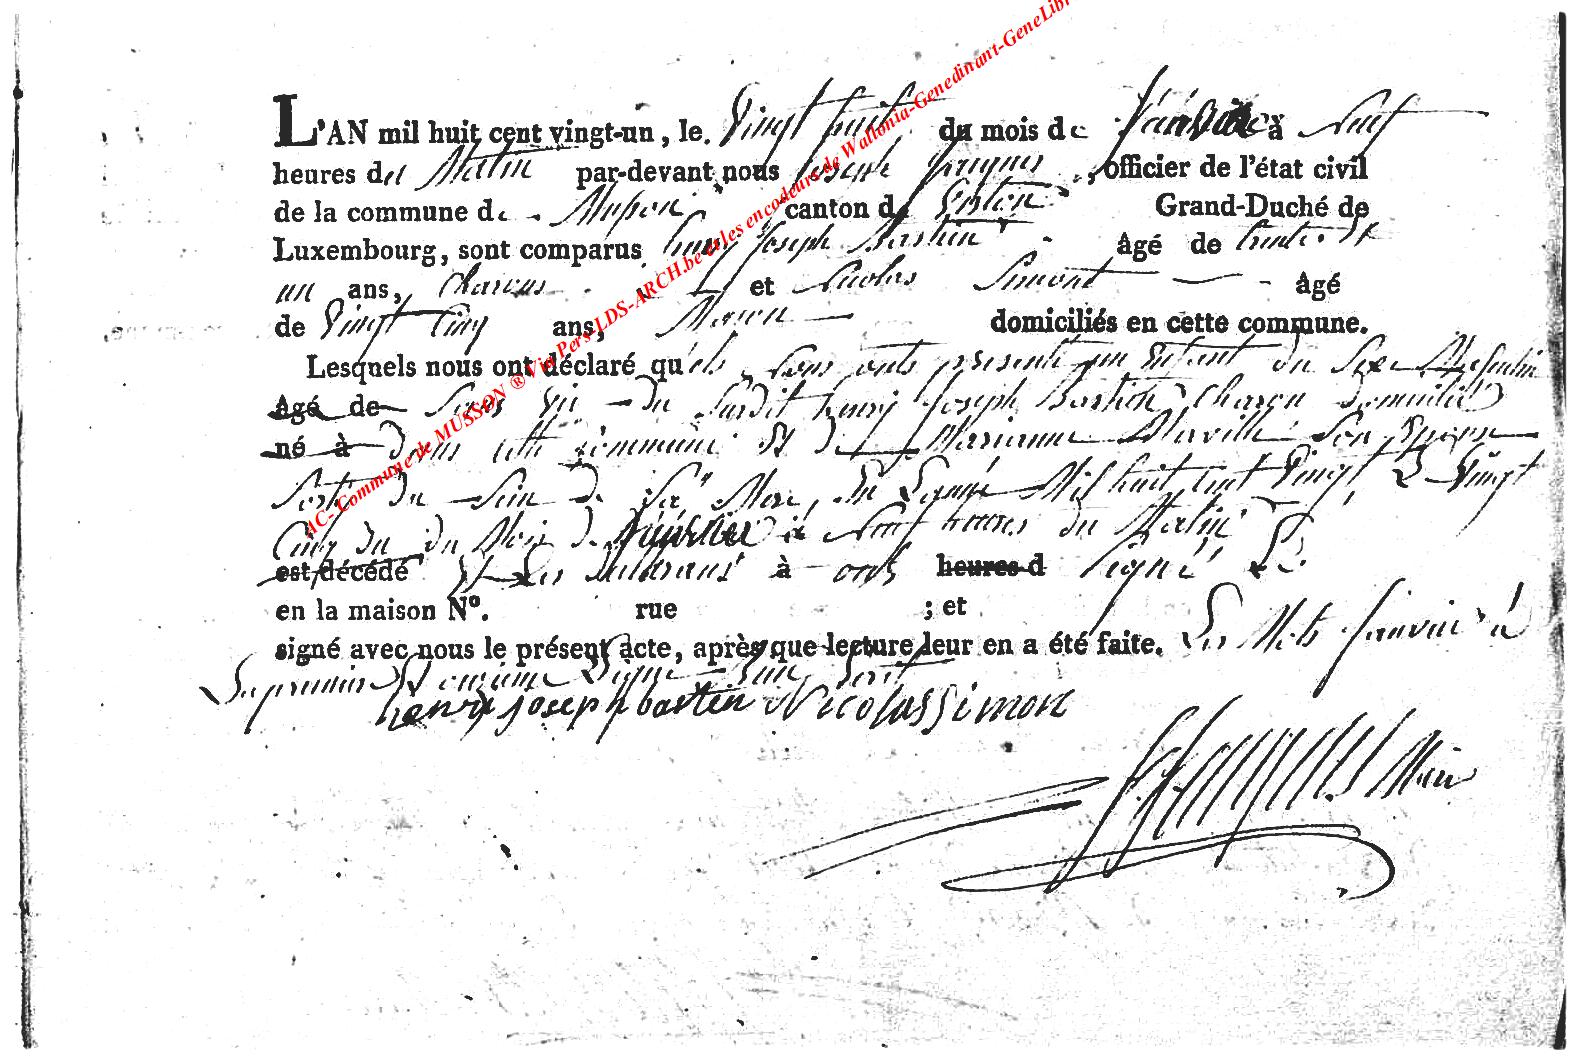 L'AN mil huit cent vingt-un, le. Vingt huit du mois de Janvier à Neuf
heures du Matin par-devant nous Joseph , officier de l'état civil
de la commune de Musson canton de Virton Grand-Duché de
Luxembourg, sont comparus henry Joseph Bastin âgé de trente et
un ans, Charon et Nicolas Simont âgé
de Vingt Cinq ans, Maçon domiciliés en cette commune.
Lesquels nous ont déclaré qu'els nous onts presenté un Enfant du Sexe Masculin
âgé de Sans vie du Susdit henry Joseph Bastin Charon domicilié
né à dans cette commune et de Marianne Maville Son Epouse
Sorti du Sein de Sa Mere, En L'année Mil huit cent Vingt & Vingt
Cinq du du Mois de à Neuf heures du Matin
est décédé Et Les à onts heures d Signé
en la maison N°. rue ; et
signé avec nous le présent acte, après que lecture leur en a été faite. Les Mots Janvier à
La premier Et onzième Ligne
henry joseph bastin Nicolas Simon
Maire
AC-Commune de MUSSON ® Via Pers-LDS-ARCH.be et les encodeurs de Wallonia-Genedinant-GeneLibr